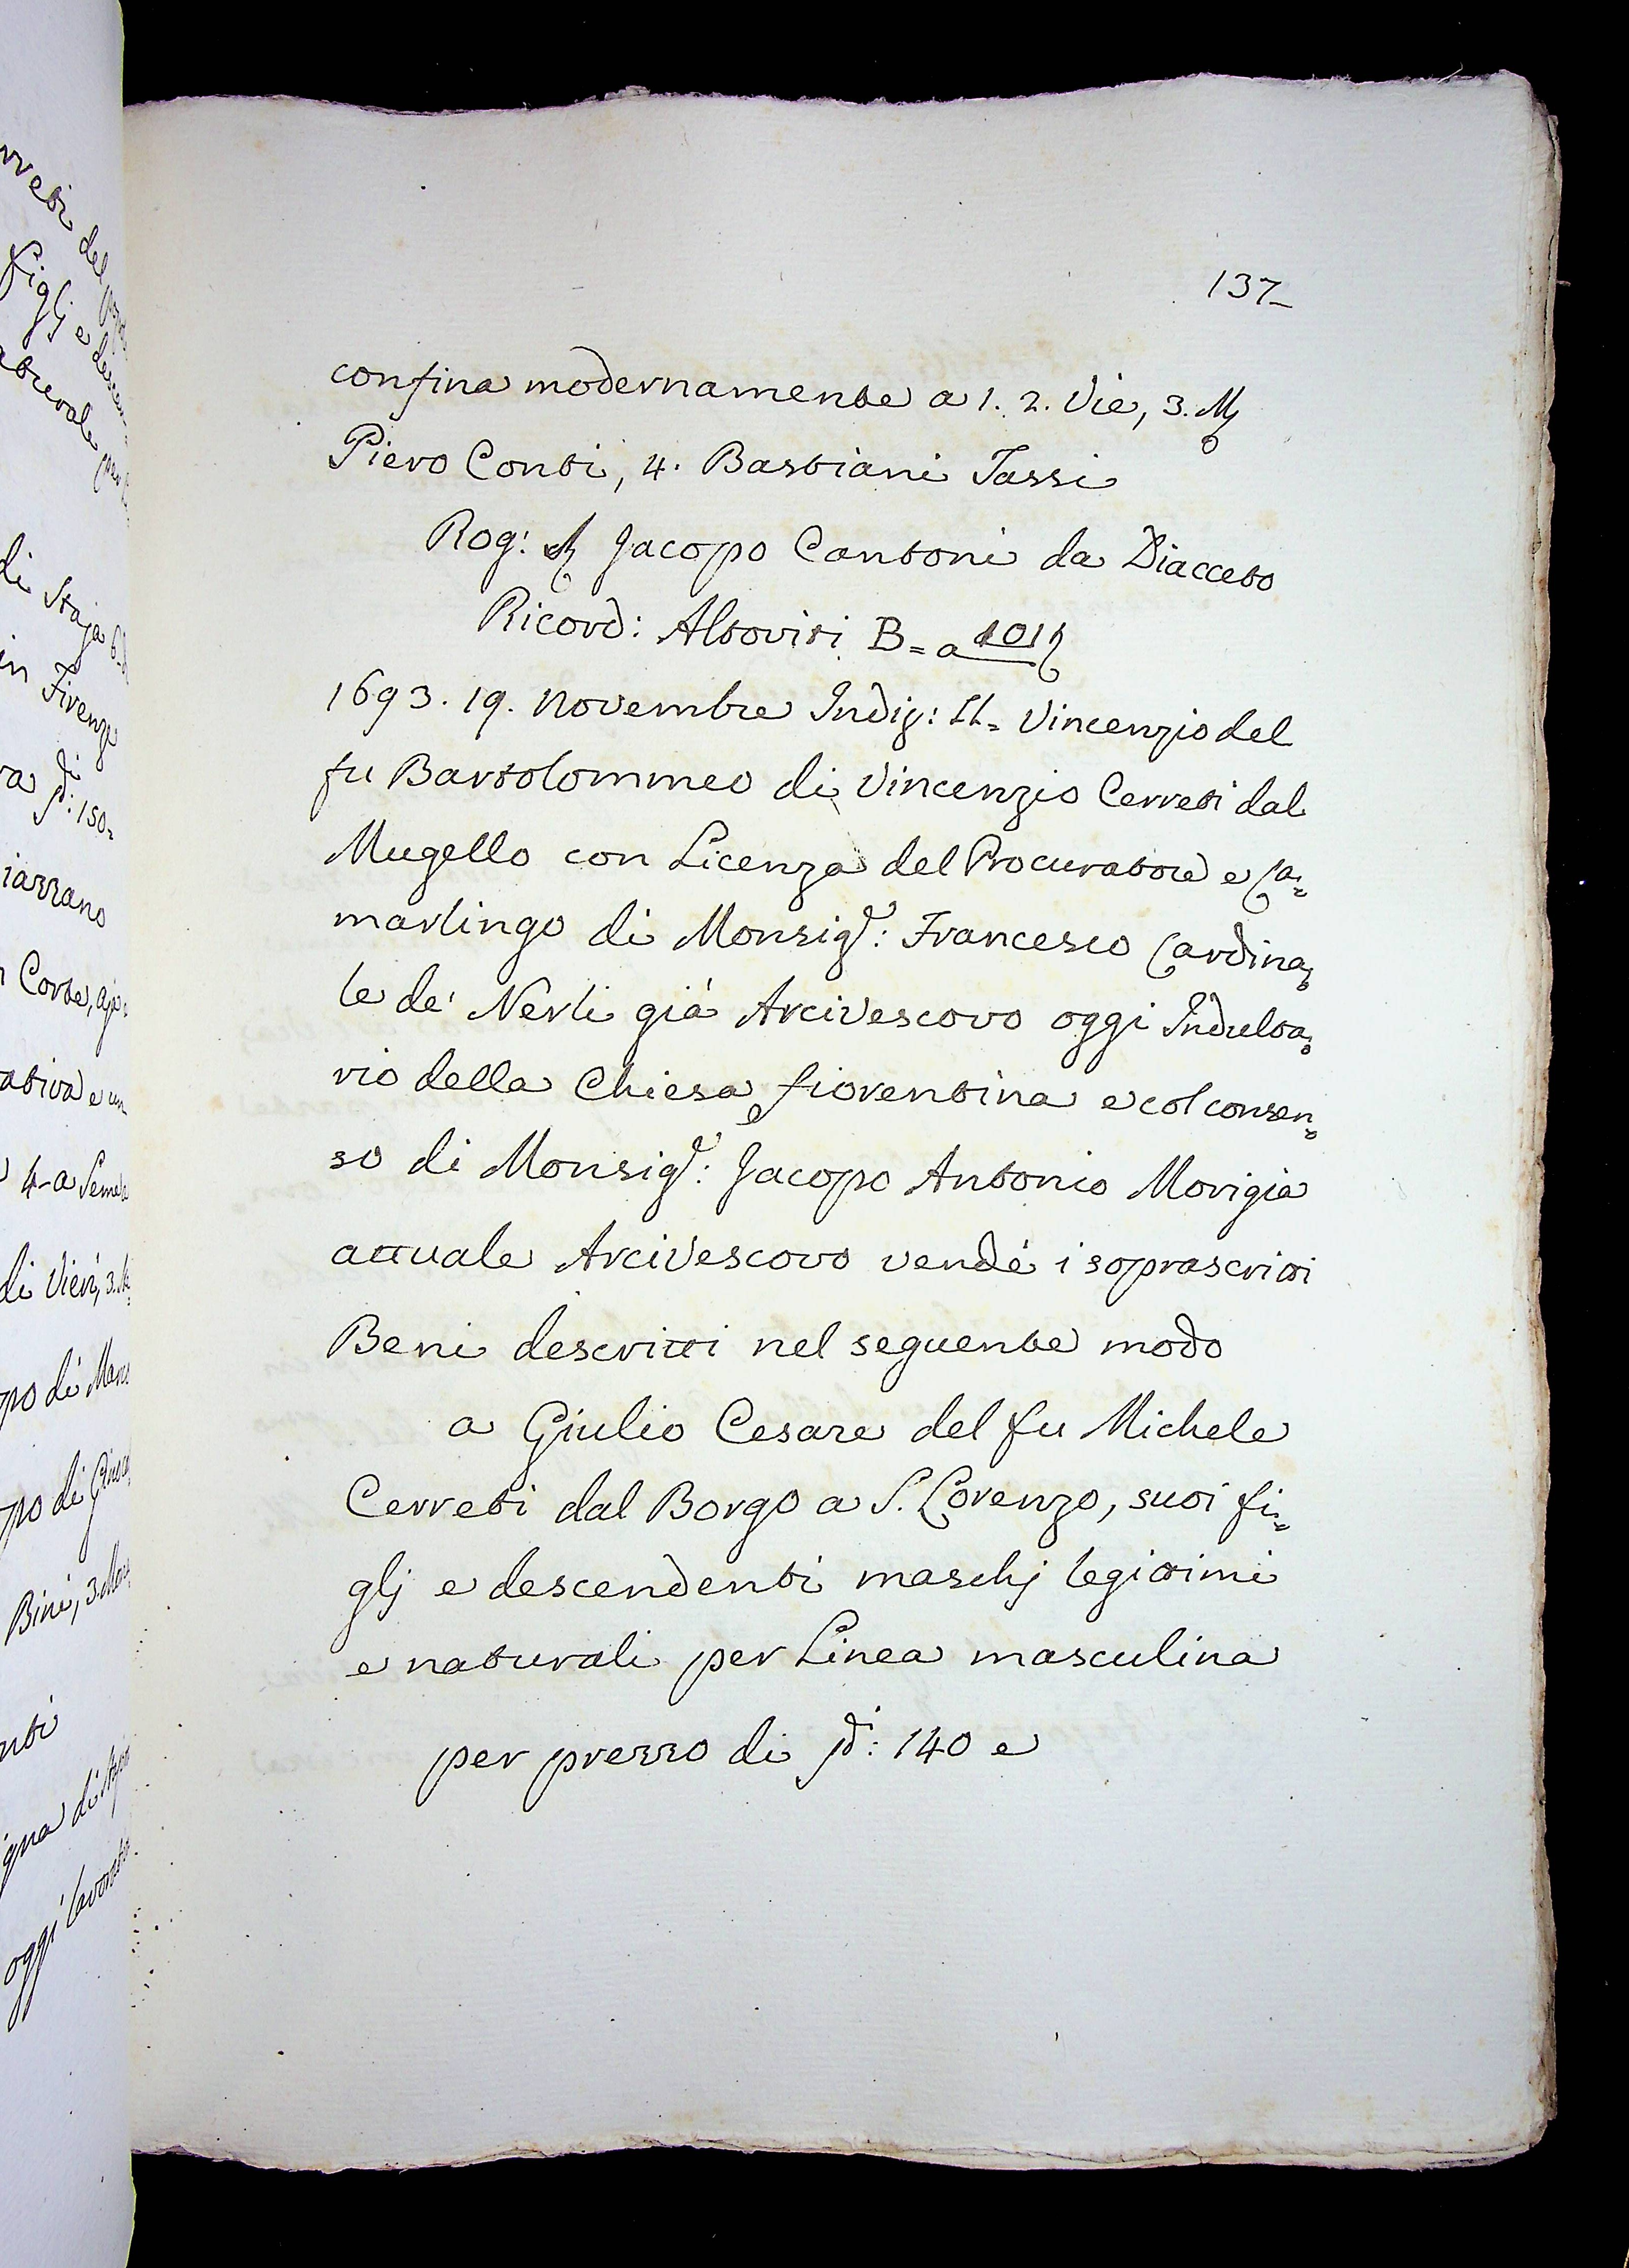 137
confina modernamente a 1. 2. Vie, 3.
Piero Conti, 4. Bastiani Tassi
Rog: Jacopo Cantoni da Diacceto
Ricord: Altoviti B= a
1693. 19. Novembre Indiz: II= Vincenzio del
fu Bartolommeo di Vincenzio Cerreti dal
Mugello con Licenza del Procuratore e Ca=
marlingo di Monsig.r: Francesco Cardina=
le de' Nerli già Arcivescovo oggi Indulta=
rio della Chiesa fiorentina e col consen=
so di Monsig.r: Jacopo Antonio Morigia
attuale Arcivescovo vendé i soprascritti
Beni descritti nel seguente modo
a Giulio Cesare del fu Michele
Cerreti dal Borgo a S. Lorenzo, suoi fi=
glj e descendenti maschj legittimi
e naturali per Linea masculina
per prezzo di di: 140 e
di Staja
in Firenze
150=
Corte,
di Vieri, 3.
po di
po di
Bini, 3
oggi